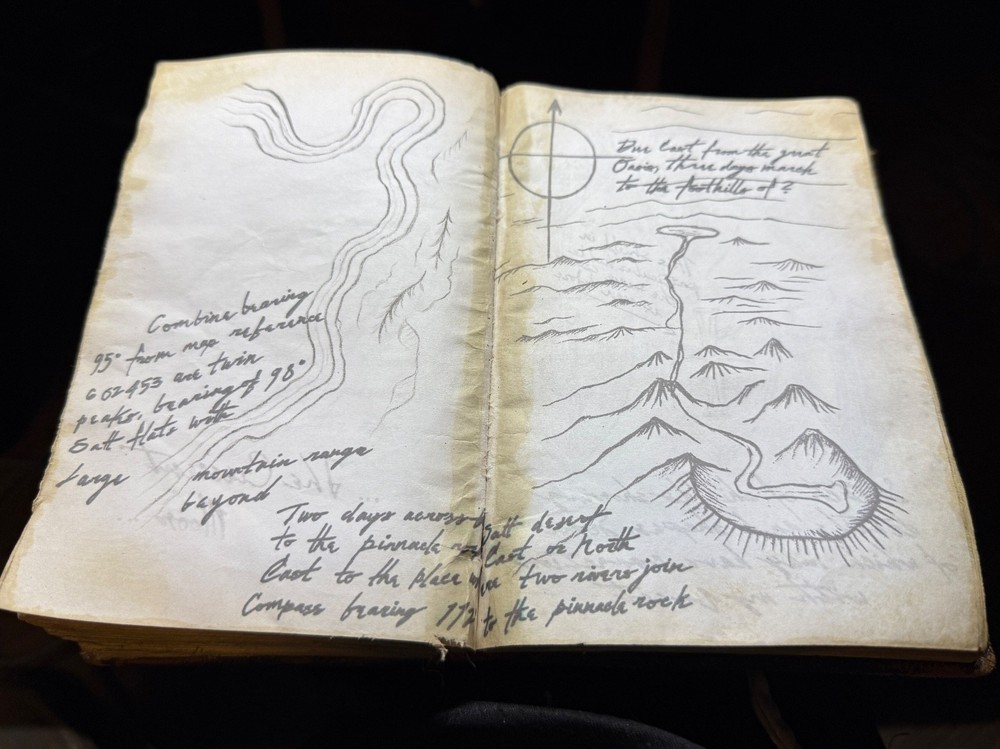 Combine bearing
95° from map reference
602453 are twin
peaks, bearing of 98°
Salt flats with
Large mountain range
beyond
Two days across Salt desert
to the pinnacle East or North
East to the place two rivers join
Compass bearing 112 to the pinnacle rock
Due East from the great
Oasis, three days march
to the foothills of ?